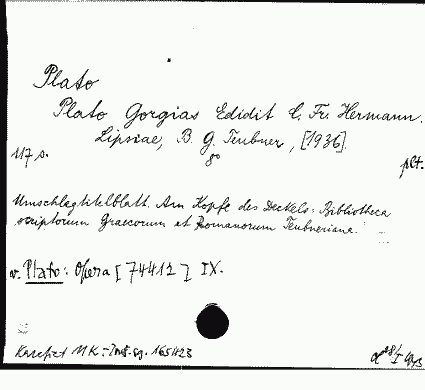 Plato
Plato Gorgias Edidit C. Fr. Hermann.
Lipsiae, B. G. Teubner, [1936].
8°
117 s. plt.
Umschlagtitelblatt. Am Kopfe des Deckels: Bibliotheca
scriptorum Graecorum et Romanorum Teubneriana.
v. Plato: Opera [74412] IX.
MK